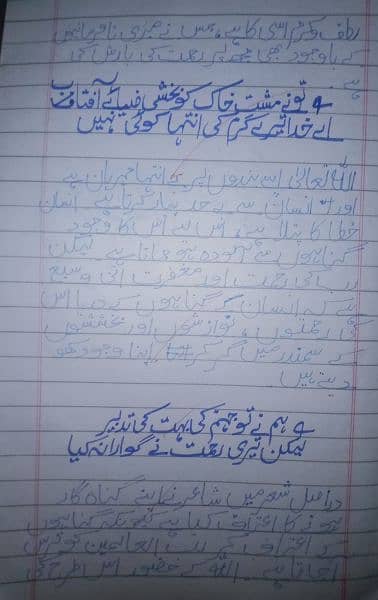 لطف و کرم اسی کا ہے، جس نے میری نافرمانیوں
کے باوجود بھی مجھ پر رحمت کی بارش کی
ہے۔
تو نے مشت خاک کو بخشی ضیائے آفتاب
اے خدا تیرے کرم کی انتہا کوئی نہیں
اللہ تعالیٰ اپنے بندوں پر بے انتہا مہربان ہے
اور انسان سے بے حد پیار کرتا ہے۔ انسان
خطا کا پتلا ہے، اس لیے اس کا وجود
گناہوں سے آلودہ ہو جاتا ہے۔ لیکن
رب کی رحمت اور مغفرت اتنی وسیع
ہے کہ انسان کے گناہوں کے دریا اس
کی رحمتوں، نوازشوں اور بخششوں
کے سمندر میں گر کر اپنا وجود کھو
دیتے ہیں۔
ہم نے تو جہنم کی بہت کی تدبیر
لیکن تیری رحمت نے گوارا نہ کیا
دراصل شعر میں شاعر نے اپنے گناہ گار
ہونے کا اعتراف کیا ہے کیونکہ گناہوں
کے اعتراف کے رب العالمین کو ترس
آجاتا ہے۔ اللہ کے حضور اس طرح کی